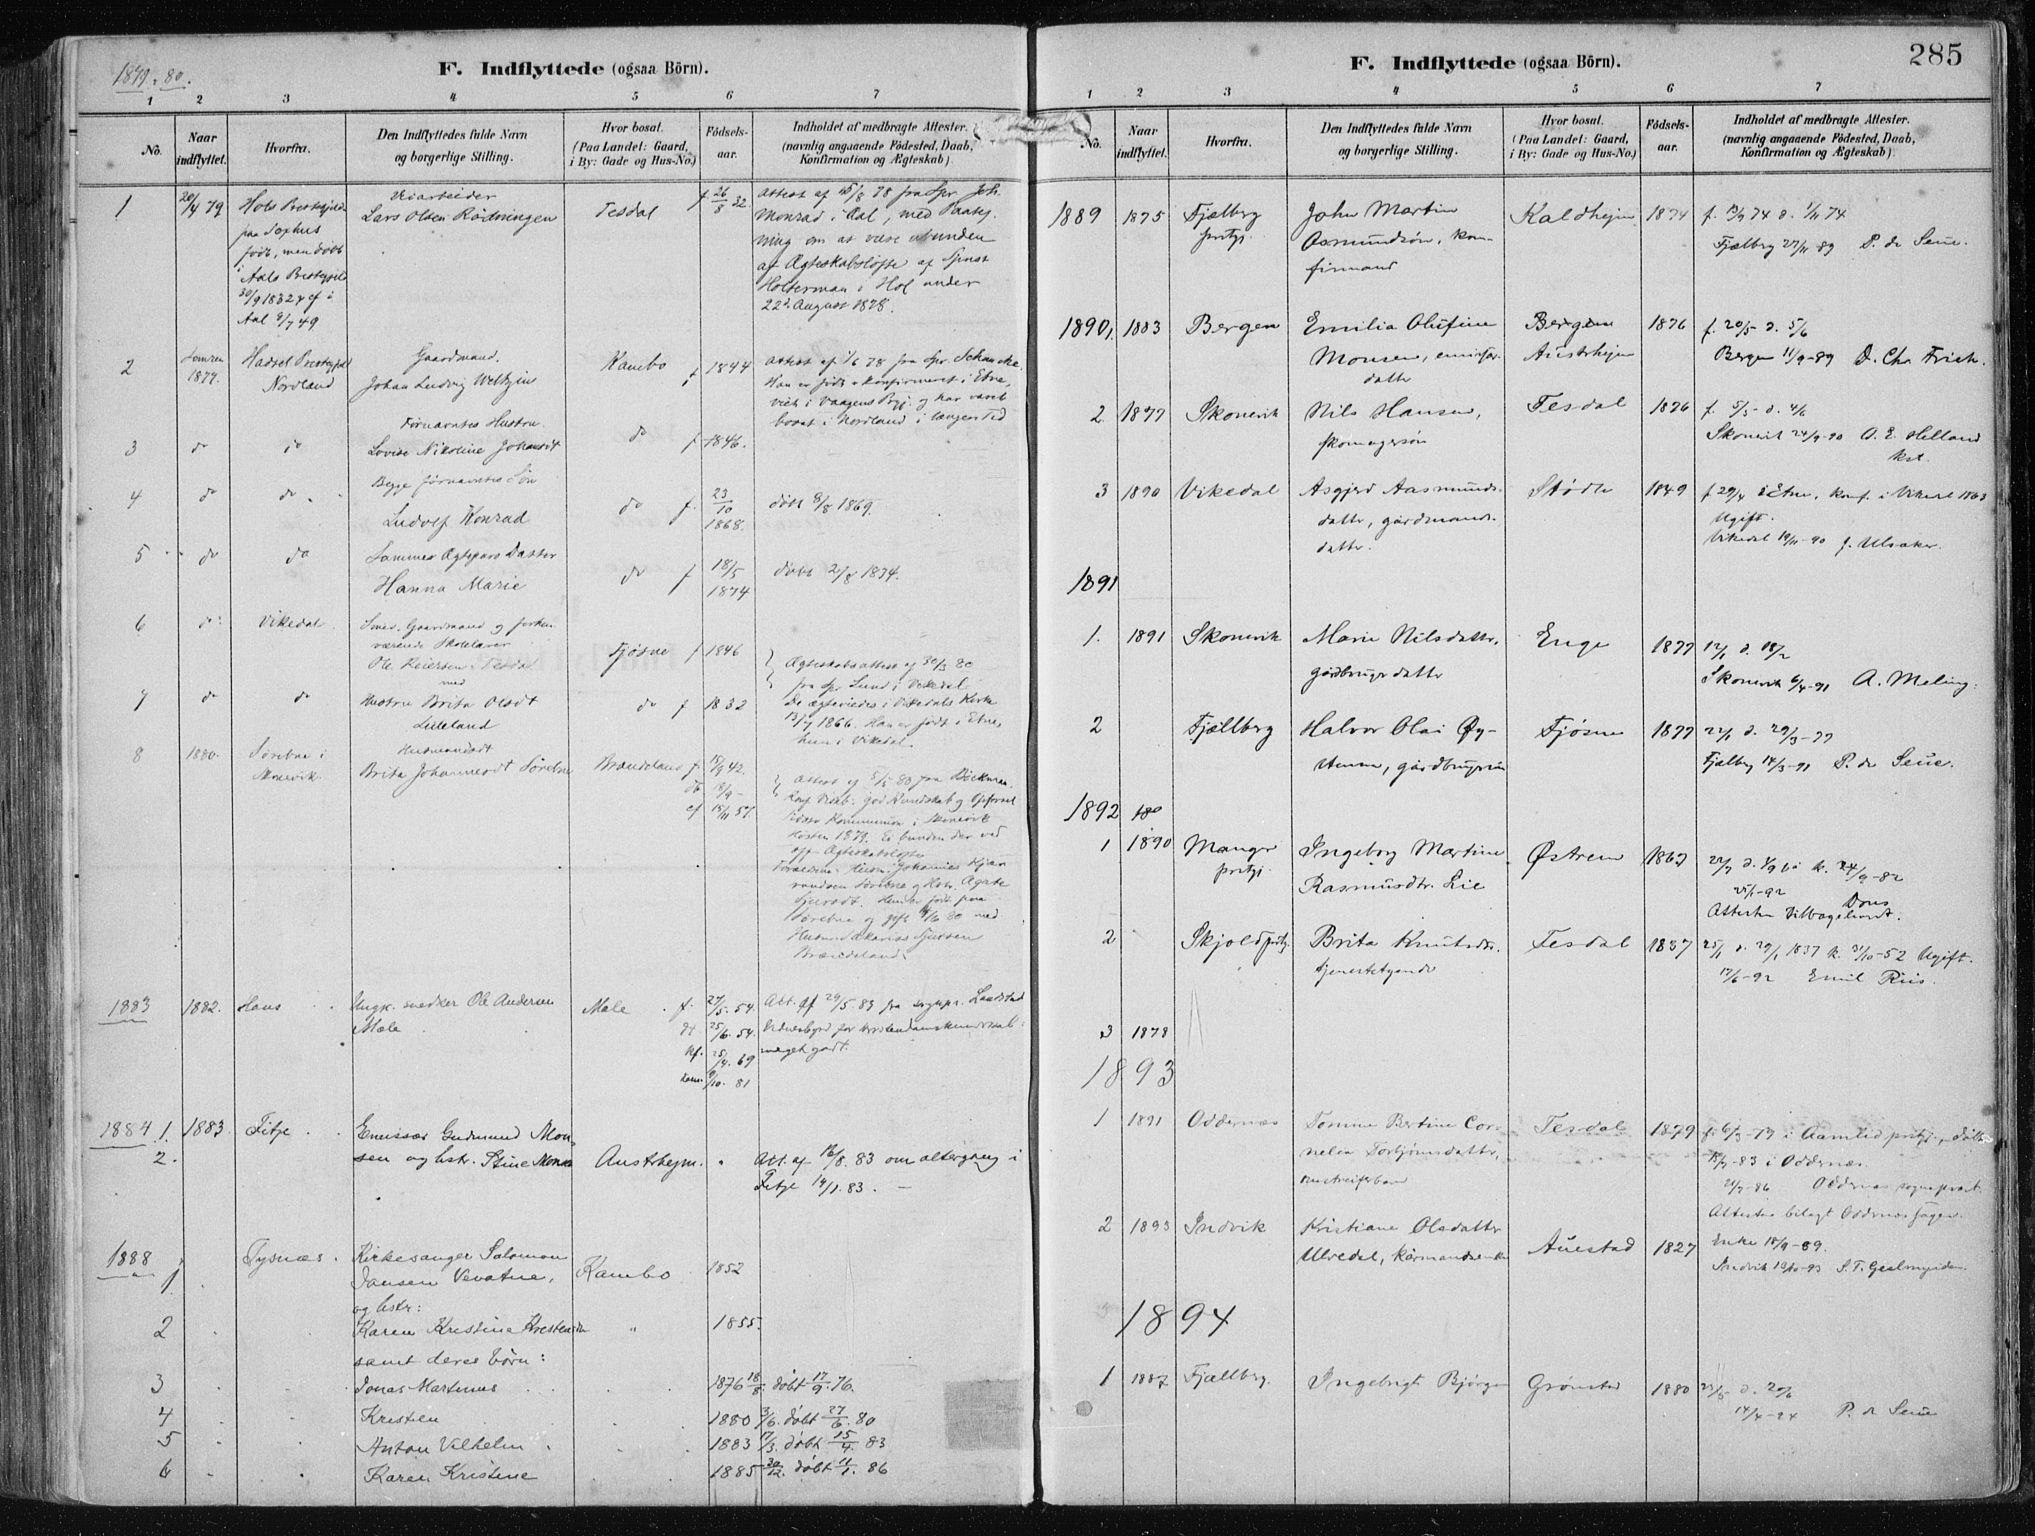 1879-80.
F. Indflyttede (ogsaa Börn).
1 2 3 4 5 6 7
No.
Naar indflyttet.
Hvorfra.
Den Indflyttedes fulde Navn
og borgerlige Stilling.
Hvor bosat.
(Paa Landet: Gaard,
i By: Gade og Hus-No.)
Födsels-
aar.
Indholdet af medbragte Attester.
(navnlig angaaende Födested, Daab,
Konfirmation og Ægteskab)
1 20/4 79 Hols Prestegjeld
paa
født, men døbt
i Aals Prestegjeld
30/9 1832
Aal 8/7 49
Veiarbeider
Lars Olsen Rødningen
Tesdal
f 26/8 32
Attest af 25/8 78 fra Spr. Joh.
Monrad i Aal, med Paateg-
ning om at være ubunden
af Ægteskabsløfte af Spræst
Holterman i Hol under
22d August 1878.
2 1879. Hadsel Prestegjeld
Nordland
Gaardmand.
Johan Ludvig
Kambo
f 1844
Attest af 1/6 78 fra Spr. Schancke.
Han er født & konfirmeret i Etne,
viet i Vaagens Prgj. og har været
bosat i Nordland i længere Tid
3 do do
Fornævntes Hustru
Lovise Nikoline Johansdt
do f 1846.
4 do do
Begge fornævntes Søn
Ludolf Konrad
do f. 23/10 1868.
døbt 8/8 1869.
5 do do
Sammes Ægtepars Datter
Hanna Marie
do f 18/5 1874
døbt 2/8 1874.
6 do Vikedal
Gaardmand og forhen-
værende Skolelærer
Ole Reiersen Tesdal
med
Fjøsne f 1846
Ægteskabsattest af 30/3 80
fra Spr Lund i Vikedal
De ægteviedes i Vikedals Kirke
13/7 1866. Han er født i Etne,
hun i Vikedal.
7 do do
Hustru Brita Olsdt
Lilleland
do f 1832
8 1880. Sørebø i
Skonevik.
Husmandsdt
Brita Johannesdt Sørebø
Brændeland f. 15/9 42.
cf 15/11 57.
Attest af 5/5 80 fra
Kommunion i Skonevik
Høsten 1879. Ei bunden der ved
Ægteskabsløfte
Forældrene:
Husmd Zakarias Sjursen
Brændeland.
1883 1882. Hans
Ungk. snedker Ole Andersen
Mæle
Mæle
f. 27/5. 54.
dt 25/6. 54.
kf. 25/4. 69
kom. 9/10. 81
Att. af 29/5 83 fra sognepr. Landstad
Vidnesbyrd for kristendomskundskab:
meget godt.
1884 1. 1883. Fitje
2.
Emissær Gudmund Mon-
sen og hstr. Stine Monsen
Austrhejm.
Att. af 16/8. 83 om altergang i
Fitje 14/1. 83. —
1888
1 Tysnæs.
Kirkesanger Salomon
Jansen Vevatne,
og hstr:
Kambo 1852
2 Karen Kristine Kristensdtr " 1855.
samt deres børn:
3 Jonas Martinus 1876 18/8. døbt 17/9. 76.
4 Kristen 1880 3/6. døbt 27/6. 80
5 Anton Vilhelm 1883 17/3. døbt 15/4. 83
6 Karen Kristine 1885 30/12. døbt 11/1. 86
F. Indflyttede (ogsaa Börn).
285
1 2 3 4 5 6 7
No.
Naar
indflyttet.
Hvorfra.
Den Indflyttedes fulde Navn
og borgerlige Stilling.
Hvor bosat.
(Paa Landet: Gaard,
i By: Gade og Hus-No.)
Födsels-
aar.
Indholdet af medbragte Attester.
(navnlig angaaende Födested, Daab,
Konfirmation og Ægteskab)
1889 1875 Fjælberg
prstgj.
John Martin
Asmundsøn, kon-
firmand
Kaldhejm 1874
f. 19/9 74 d. 1/11 74
Fjælberg 27/11 89 P. de Seue.
1890, 1883 Bergen
Emilia Olufine
Monsen, emissær-
datter
Bergen
Austrhejm
1876
f. 20/5 d. 5/6
Bergen 11/9-89 D. Chr. Frich.
2 1877 Skonevik
Nils Hansen,
skomagersøn
Tesdal 1876
f. 5/5 d. 4/6
Skonevik 24/9-90 A. E. Helland
kst.
3 1890 Vikedal
Asgjerd Aasmunds-
datter, gårdmands-
datter.
Stødle 1849
f 29/4 i Etne, konf. i Vikedal 1863
Ugift.
Vikedal 19/11-90 J. Ulsaker.
1891
1. 1891 Skonevik
Marie Nilsdatter,
gårdbrugerdatter
Enge 1877
12/1 d. 18/2
Skonevik 6/4-91 A. Meling.
2 Fjællberg
Halvor Olai Øy-
, gårdbrugersøn
Fjøsne 1877
22/1 d. 29/3-77
Fjælberg 14/3-91 P. de Seue.
1892
1 1890 Manger
prstgj.
Ingeborg Martine
Rasmusdtr. Lie
Østrem 1867
k. 24/9-82
25/1-92
Attesten tilbageleveret.
2 Skjold prstgj.
Brita Knutsdtr.
tjenestetjende
Tesdal 1837
25/1 d. 29/1 1837 k. 31/10-52 Ugift.
17/6-92 Emil Riis.
3 1878
1893
1 1891 Oddernæs
Tomine Bertine Cor-
nelia Torbjørnsdatter,
omstreiferbarn
Tesdal 1879
f. 6/3-79 i Aamlid prstgj., døbt
18/9-83 i Oddernæs.
21/9-86 Oddernæs sogneprest.
Attesten bilagt Oddernæssagen.
2 1893 Indvik
Kristiane Olsdatter
Ulvedal, kårmandsenke
Auestad 1827
Enke 18/9-89.
Indvik 19/10-93 S. T. Geelmuyden.
1894
1 1887 Fjællberg.
Ingebrigt Bjørge
Grønstad 1880
d. 20/6
14/4-94 P. de Seue